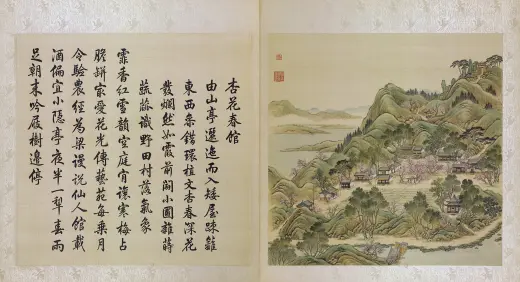 杏花春館
由山亭邐迤而入矮屋疎籬
東西參錯環植文杏春深花
發爛然如霞前闢小圃雜蒔
蔬蓏識野田村落氣象
霏香紅雪韻空庭肯讓寒梅占
膽缾最愛花光傳藝苑每乘月
令驗農經為梁謾說仙人館載
酒偏宜小隱亭夜半一犁春雨
足朝來吟屧樹邊停